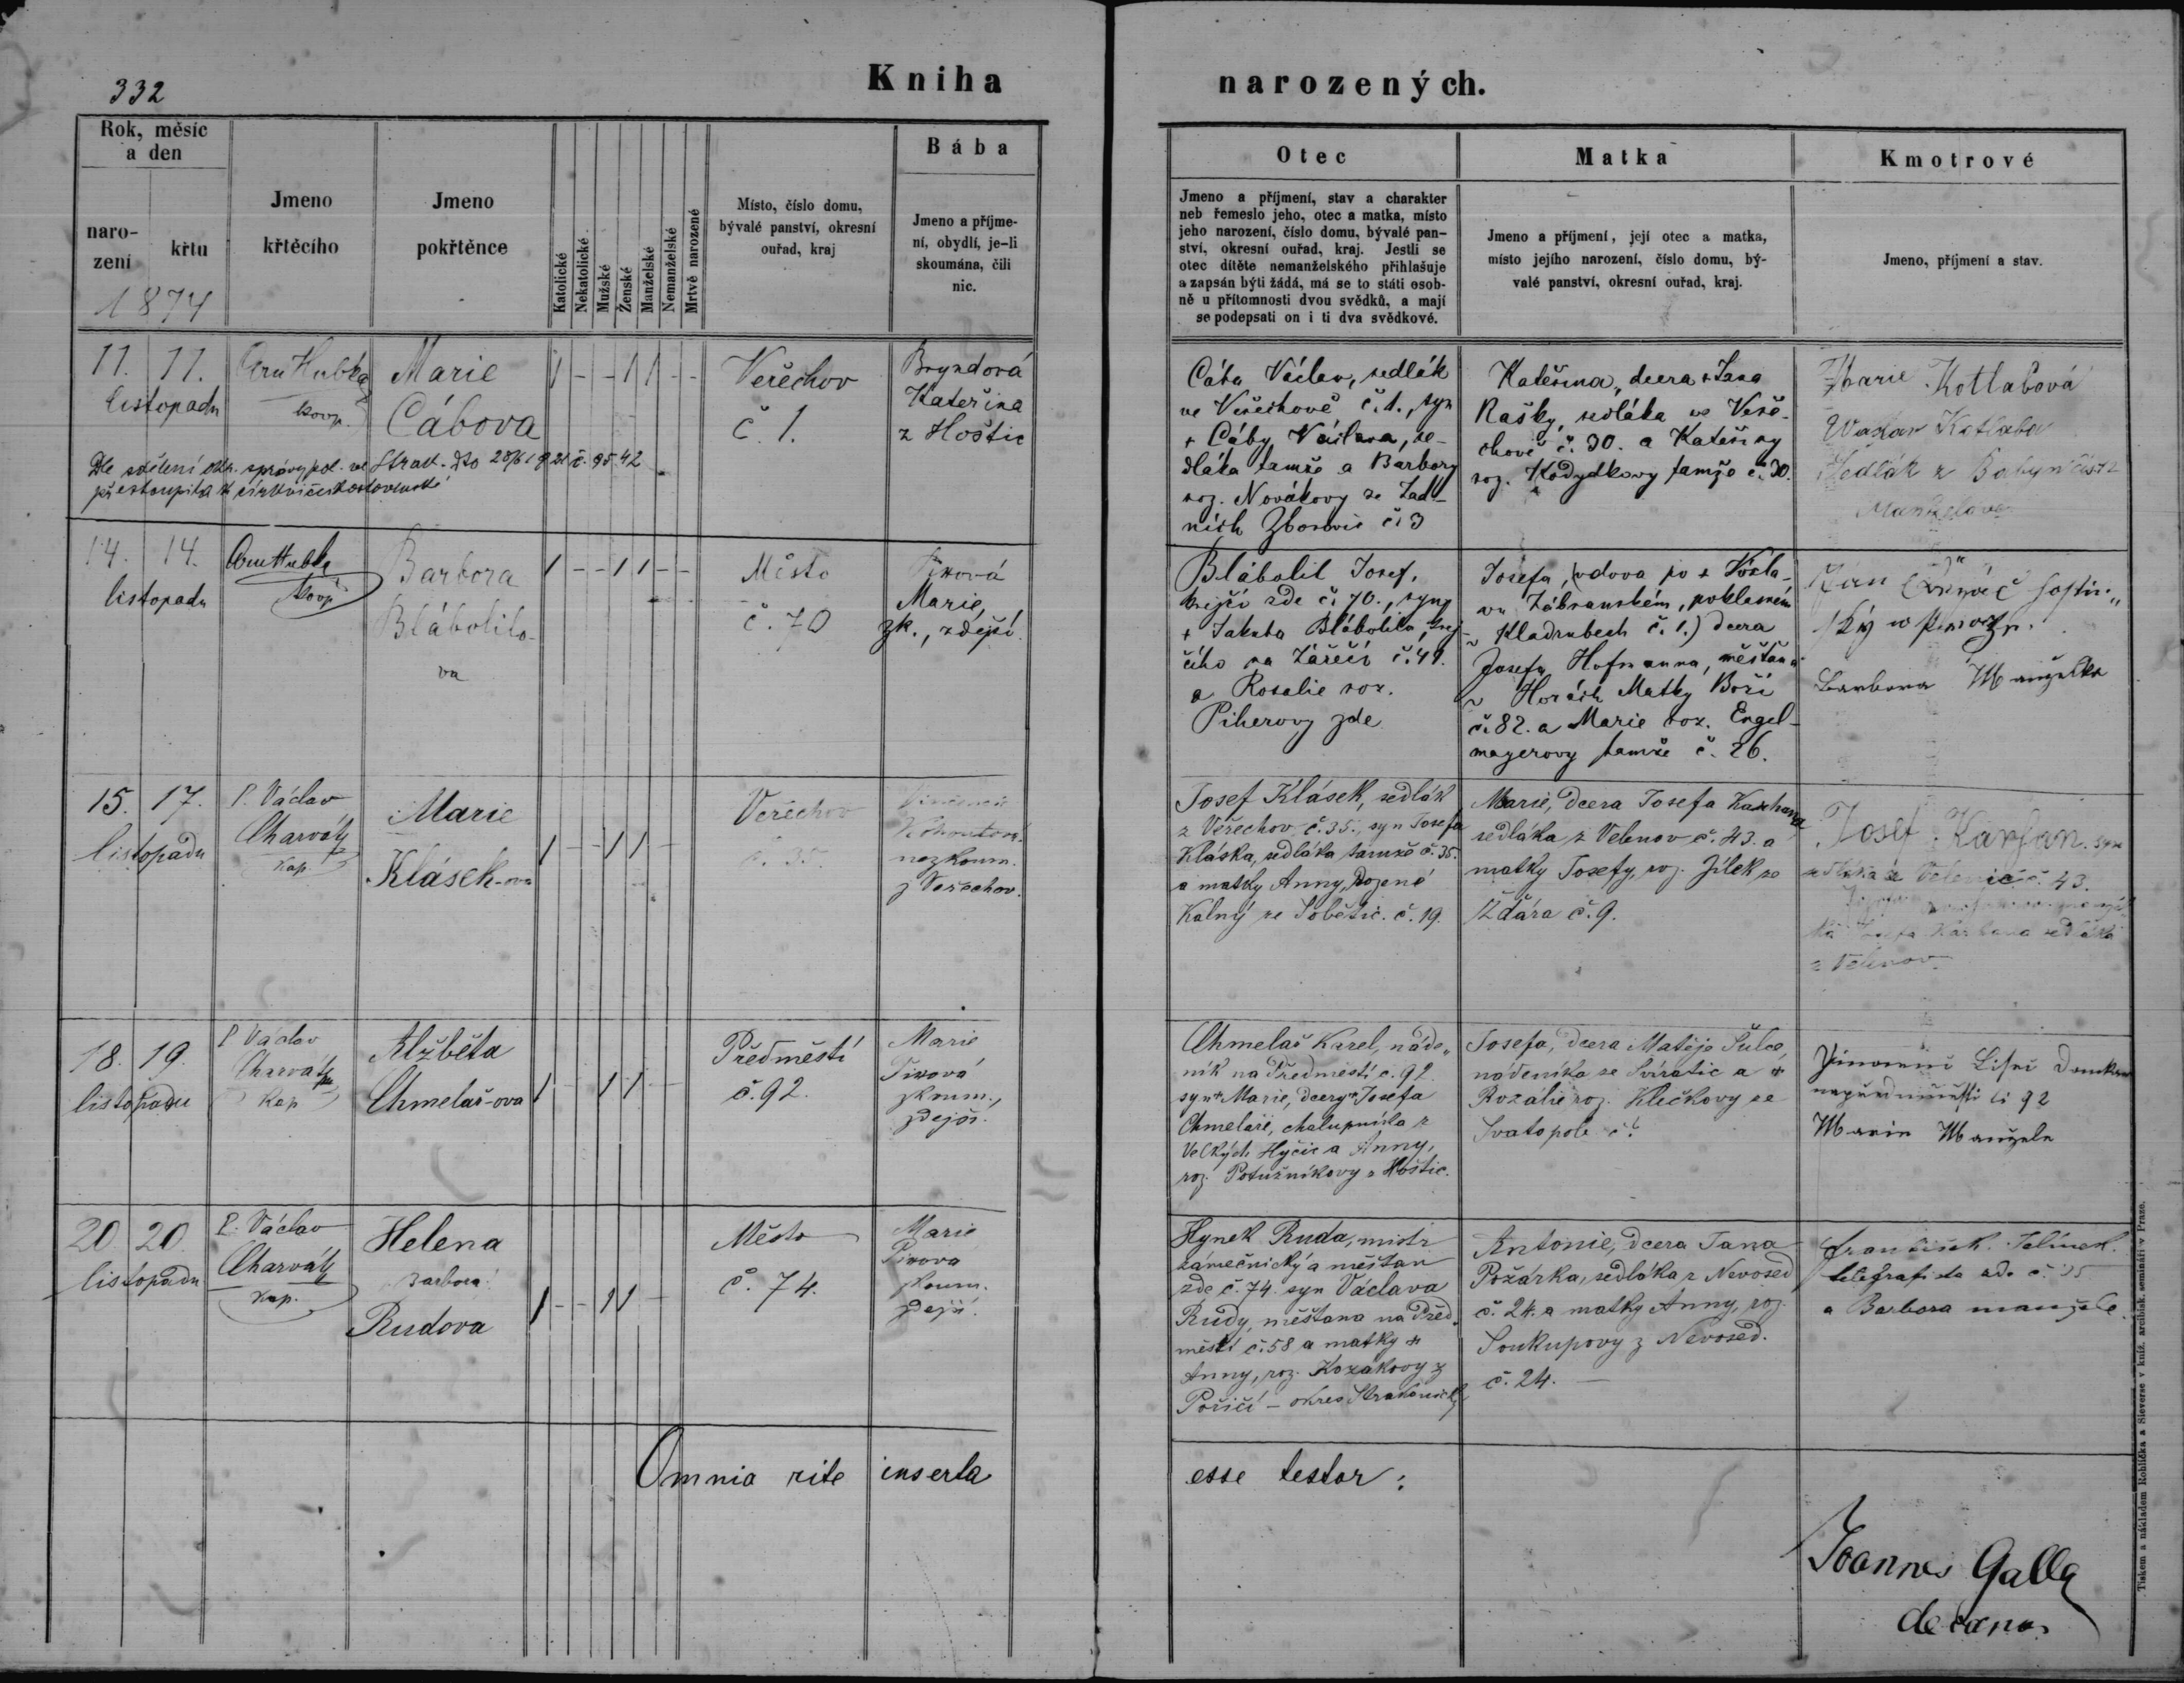 332
Kniha
narozených.
Rok, měsíc
a den
naro-
zení
křtu
1874
Jmeno
křtěcího
Jmeno
pokřtěnce
Katolické
Nekatolické
Mužské
Ženské
Manželské
Nemanželské
Mrtvě narozené
Místo, číslo domu,
bývalé panství, okresní
ouřad, kraj
Bába
Jmeno a příjme-
ní, obydlí, je-li
skoumána, čili
nic.
Otec
Jmeno a příjmení, stav a charakter
neb řemeslo jeho, otec a matka, místo
jeho narození, číslo domu, bývalé pan-
ství, okresní ouřad, kraj. Jestli se
otec dítěte nemanželského přihlašuje
a zapsán býti žádá, má se to státi osob-
ně u přítomnosti dvou svědků, a mají
se podepsati on i ti dva svědkové.
Matka
Jmeno a příjmení, její otec a matka,
místo jejího narození, číslo domu, bý-
valé panství, okresní ouřad, kraj.
Kmotrové
Jmeno, příjmení a stav.
11. 11.
listopadu
Hubka
Marie
Cábova
1 - - 1 1 - -
Veřechov
č. 1.
Bryndová
Kateřina
z Hoštic
Dle sdělení okr. správy pol. ve Strak. dto 28/6 1921 č. 9542
přestoupila k církvi československé
Cába Václav, sedlák
ve Veřechově č. 1., syn
+ Cáby Václava, se-
dláka tamže a Barbory
roz. Novákovy ze Zad-
ních Zborovic č. 3
Kateřina, dcera + Jana
Rašky, sedláka ve Veře-
chově č. 30. a Kateřiny
roz. Kodydkovy tamže č. 30.
Marie Kotlabová
Kotlaba
Sedlák z
Manželova
14. 14.
listopadu
Hubka
Barbora
Blábolilo-
va
1 - - 1 1 - -
Město
č. 70
Pixová
Marie,
zk., zdejší.
Blábolil Josef,
krejčí zde č. 70., syn
+ Jakuba Blábolila, krej-
čího na Zářečí č. 41.
a Rosalie roz.
Piherovy zde
Josefa, (vdova po + Václa-
vu Zábranském, poklasném
v Kladrubech č. 1.) dcera
Josefa Hofmanna, měšťana
v Horách Matky Boží
č. 82. a Marie roz. Engel-
mayerovy tamže č. 26.
Jan
Barbora Manželka
15. 17.
listopadu
P. Václav
Charvát
Kap.
Marie
Klásek-ova
1 - - 1 1 -
Veřechov
č. 35.
Kohoutová
nezkoum.
z Veřechov.
Josef Klásek, sedlák
z Veřechov č. 35., syn Josefa
Kláska, sedláka tamže č. 35.
a matky Anny, rozené
Kalný ze Soběšic. č. 19.
Marie, dcera Josefa Karhana
sedláka z Velenov č. 43. a
matky Josefy, roz. Jílek ze
Žďára č. 9.
Josef Karhan. syn
č. 43.
sedláka
z Velenov.
18. 19.
listopadu
P. Václav
Charvát
Kap
Alžběta
Chmelař-ova
1 - 1 1 -
Předměstí
č. 92.
Marie
Pixová
zkoum.,
zdejší.
Chmelař Karel, náde-
ník na Předměstí č. 92.
syn + Marie, dcery + Josefa
Chmelaře, chalupníka z
Velkých Hyčic a Anny,
roz. Potužníkovy z Hoštic.
Josefa, dcera Matěje Šulce,
nádeníka ze Svératic a +
Rozálie roz. Klečkovy ze
Svatopole č?
92
Marie Manžele
20. 20.
listopadu
P. Václav
Charvát
Kap.
Helena
Barbora
Rudova
1 - - 1 1 -
Město
č. 74.
Marie
Pixova
zkoum.
zdejší.
Hynek Ruda, mistr
zámečnický a měšťan
zde č. 74. syn Václava
Rudy, měšťana na Před-
městí č. 58 a matky +
Anny, roz. Kozákovy z
Poříčí - okres Strakonický
Antonie, dcera Jana
Požárka, sedláka z Nevosed
č. 24. a matky Anny, roz.
Soukupovy z Nevosed.
č. 24. —
František Jelínek.
telegrafista zde č. 35
a Barbora manžele.
Omnia rite inserta esse testor:
Joannes Galla
decanus
Tiskem a nákladem Rohlíčka a Sieverse v kníž. arcibisk. semináři v Praze.